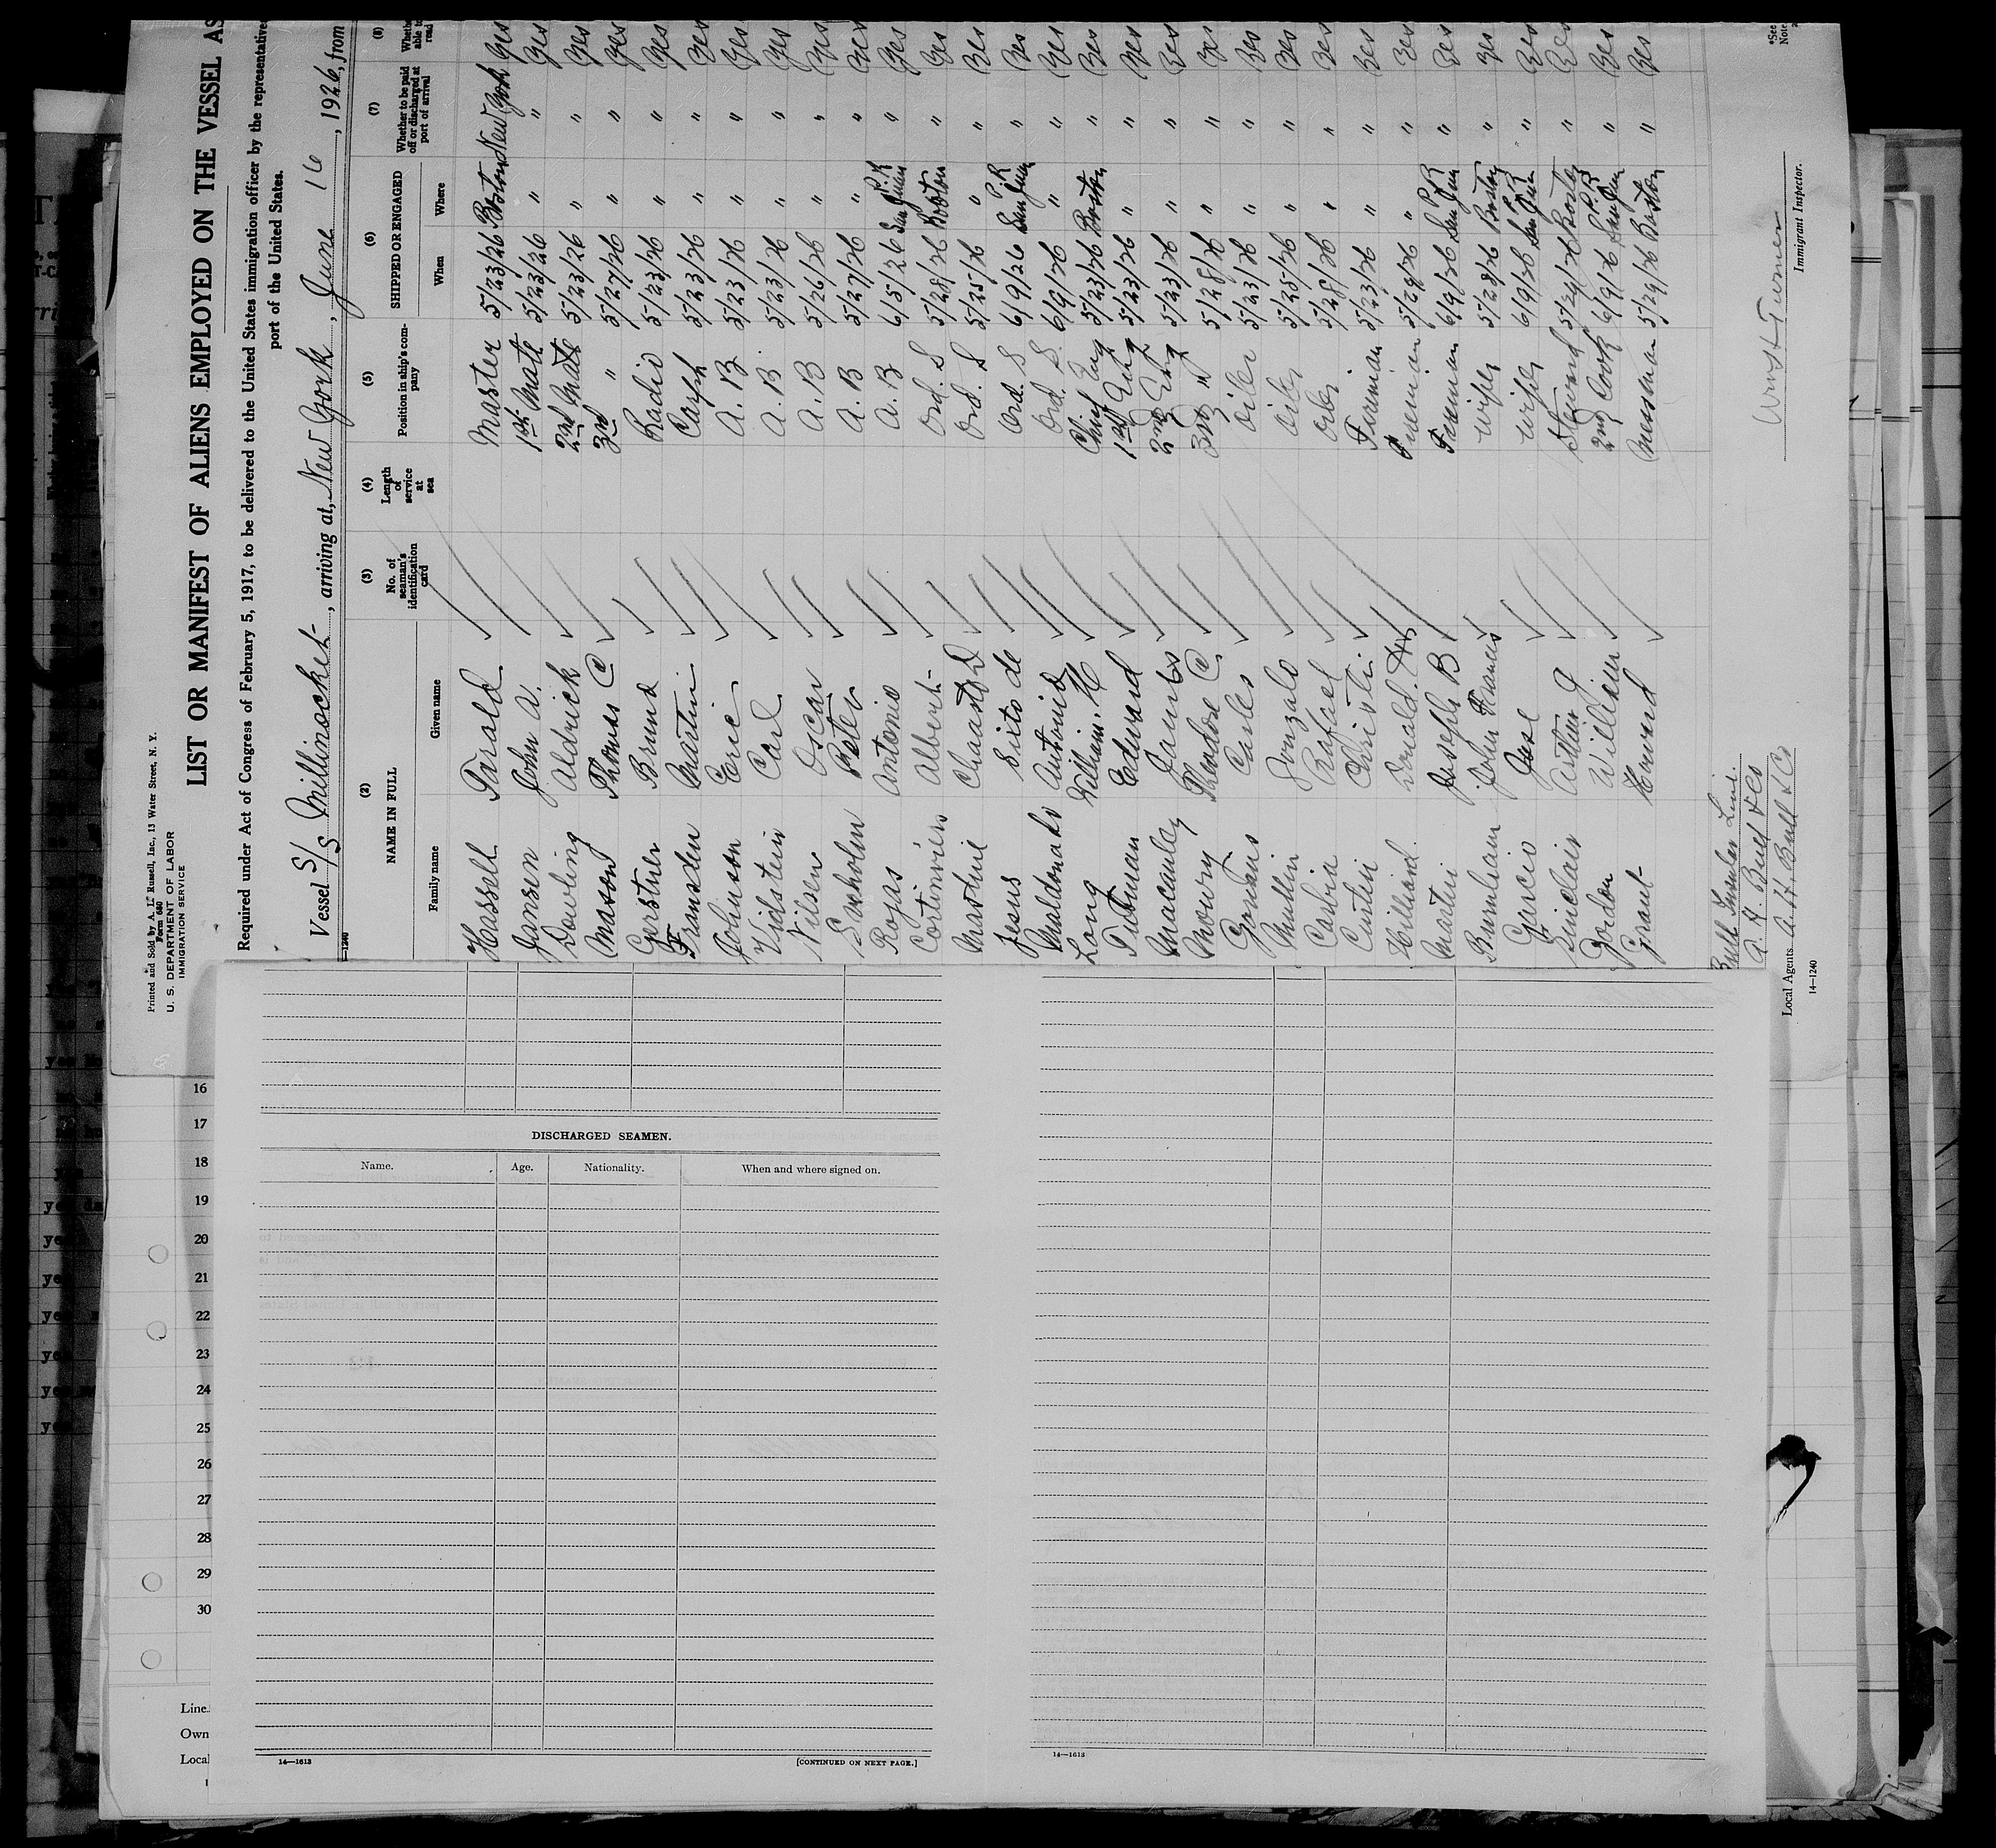 Printed and Sold by A. L. Russell, Inc., 13 Water Street, N. Y.
Form 680
U. S. DEPARTMENT OF LABOR
IMMIGRATION SERVICE
LIST OR MANIFEST OF ALIENS EMPLOYED ON THE VESSEL AS
Required under Act of Congress of February 5, 1917, to be delivered to the United States immigration officer by the representative
port of the United States.
Vessel S/S Millinocket, arriving at, New York, June 16, 1926, from
14—1240
(2) (3) (4) (5) (6) (7) (8)
NAME IN FULL No. of seaman's identification card Length of service at sea Position in ship's company SHIPPED OR ENGAGED Whether to be paid off or discharged at port of arrival Whether able to read
Family name Given name When Where
Hassell Tarald Master 5/23/26 Boston New York Yes
Jansen John A. 1st Mate 5/23/26 " " Yes
Dowling Aldrick 2nd Mate 5/23/26 " " Yes
Masson Thomas C 3rd " 5/27/26 " " Yes
Gerstner Bruno Radio 5/23/26 " " Yes
Fransden Martin Carp 5/23/26 " " Yes
Johnson Eric A. B. 5/23/26 " " Yes
Vidstein Carl A. B. 5/23/26 " " Yes
Nilsen Oscar A. B 5/26/26 " " Yes
Saxholm Peter A. B 5/27/26 " " Yes
Rojas Antonio A. B 6/5/26 San Juan P.R " Yes
Albert Ord. S 5/28/26 Boston " Yes
Ord. S 5/25/26 " " Yes
Jesus Sixto de Ord. S 6/9/26 San Juan P.R " Yes
Maldonado Antonio Ord. S. 6/9/26 " " Yes
Long William. H Chief Eng 5/23/26 Boston " Yes
Tubman Edward 1st Eng 5/23/26 " " Yes
Macauley James 2nd Eng 5/23/26 " " Yes
Mowry Theodore C 3rd " 5/28/26 " " Yes
Carlos Oiler 5/23/26 " " Yes
Gonzalo Oiler 5/25/26 " " Yes
Rafael Oiler 5/28/26 " " Yes
Curtin Fireman 5/23/26 " " Yes
Donald. Fireman 5/29/26 " " Yes
Martin Joseph B Fireman 6/9/26 San Juan P.R " Yes
Burnham John Francis Wiper 5/28/26 Boston " Yes
Garcia Jose Wiper 6/9/26 San Juan P.R " Yes
Sinclair Arthur G Steward 5/29/26 Boston " Yes
Gordon William 2nd Cook 6/9/26 San Juan P.R " Yes
Grant Howard Messman 5/29/26 Boston " Yes
Bull Insular Line.
A. H. Bull & Co
Local Agents A. H. Bull & Co
14—1240
Immigrant Inspector.
*See
Note
16
17
18
19
20
21
22
23
24
25
26
27
28
29
30
Line
Own
Local
DISCHARGED SEAMEN.
Name. Age. Nationality. When and where signed on.
14—1613
[CONTINUED ON NEXT PAGE.]
14—1613